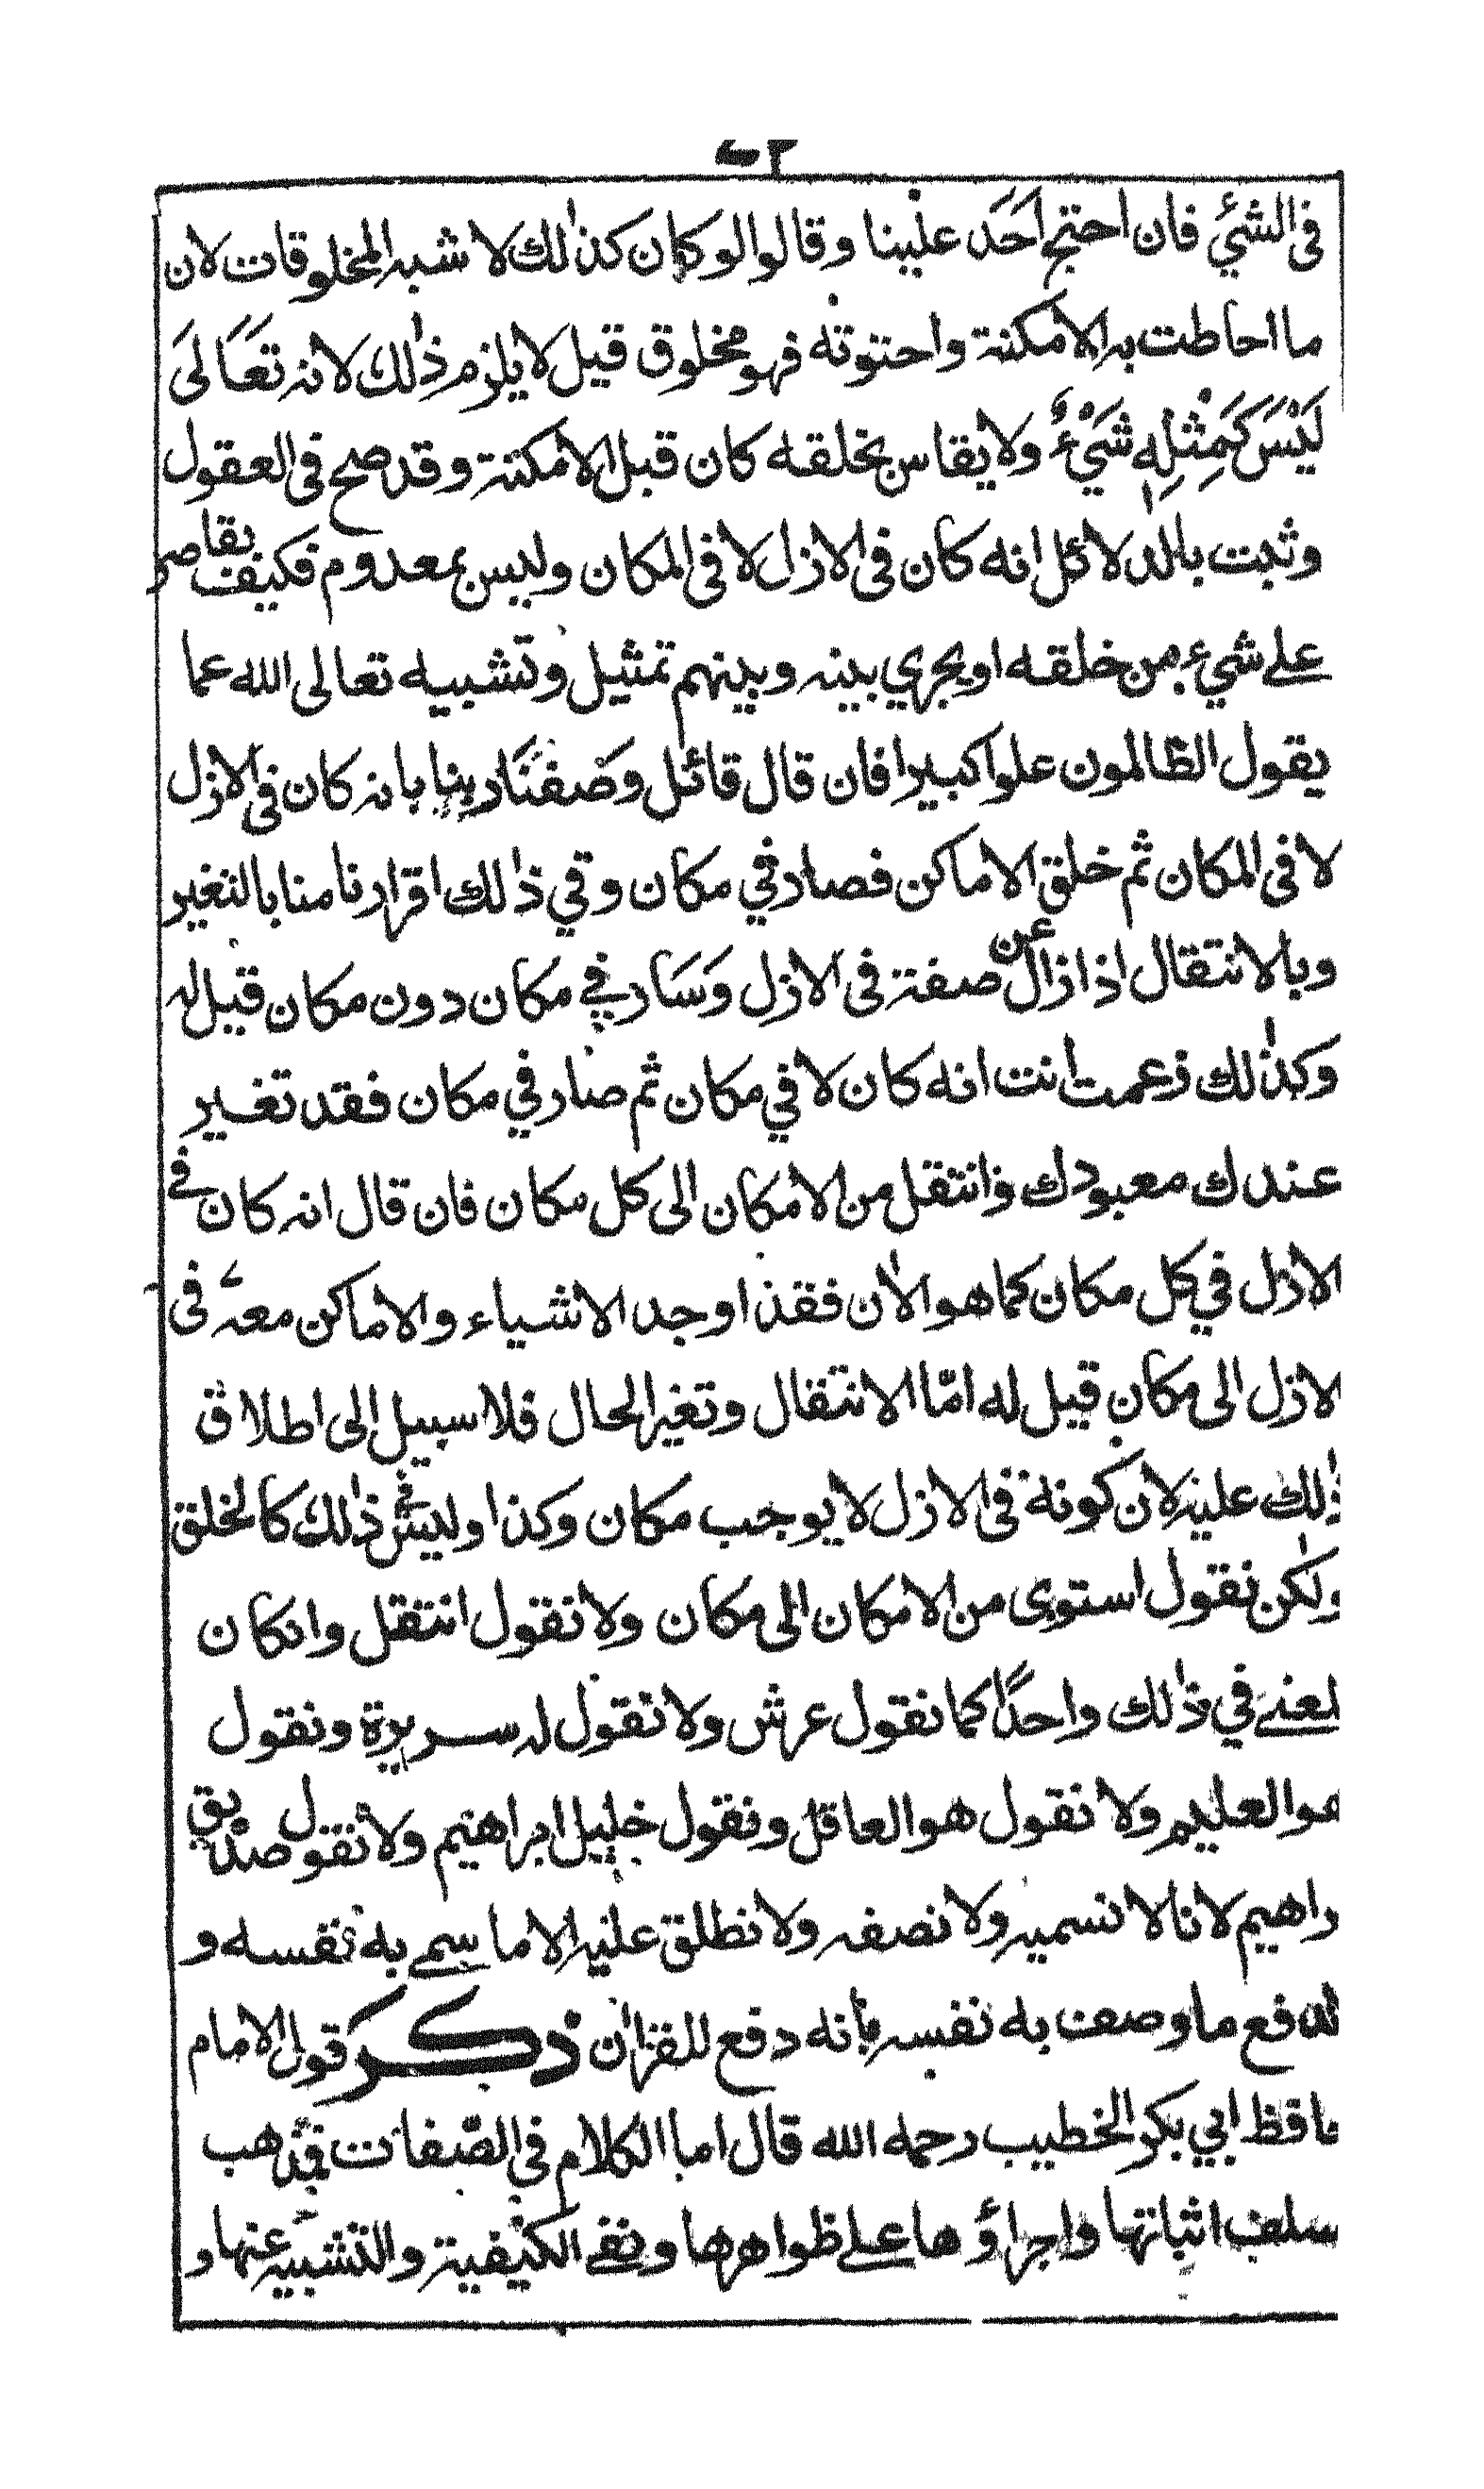 فى الشئ فان احتج احد علينا وقالوا لو كان كذلك لاشبه المخلوقات لان
ما احاطت به الامكنة واحتوته فهو مخلوق قيل لا يلزم ذلك لانه تعالى
لَيْسَ كَمِثْلِهٖ شَيْءٌ ولا يقاس بخلقه كان قبل الامكنة وقد صح فى العقول
وثبت بالدلائل انه كان فى الازل لا فى المكان وليس بمعدوم فكيف يقاس
على شيء من خلقه او يجري بينه وبينهم تمثيل وتشبيه تعالى الله عما
يقول الظالمون علوا كبيرا فان قال قائل وصفنا ربنا بانه كان فى الازل
لا فى المكان ثم خلق الاماكن فصار في مكان وفي ذلك اقرارنا منا بالتغير
وبالانتقال اذا زال عن صفته فى الازل وسار في مكان دون مكان قيل له
وكذلك زعمت انت انه كان لا في مكان ثم صار في مكان فقد تغير
عندك معبودك وانتقل من الامكان الى كل مكان فان قال انه كان في
الازل في كل مكان كما هو الان فقد اوجد الاشياء والاماكن معه فى
الازل الى مكان قيل له امّا الانتقال وتغير الحال فلا سبيل الى اطلاق
ذلك عليه لان كونه فى الازل لا يوجب مكان وكذا وليس في ذلك كالخلق
ولكن نقول استوى من الامكان الى مكان ولا نقول انتقل وان كان
المعنى في ذلك واحدًا كما نقول عرش ولا نقول له سريرة ونقول
هو العليم ولا نقول هو العاقل ونقول خليل ابراهيم ولا نقول صديق
براهيم لانا لا نسميه ولا نصفه ولا نطلق عليه الا ما سمى به نفسه و
لا ندفع ما وصف به نفسه بأنه دفع للقران ذكر قول الامام
حافظ ابي بكر الخطيب رحمه الله قال اما الكلام فى الصّفات فذهب
سلف اثباتها واجراؤها على ظواهرها ونفى الكيفية والتشبيه عنها و